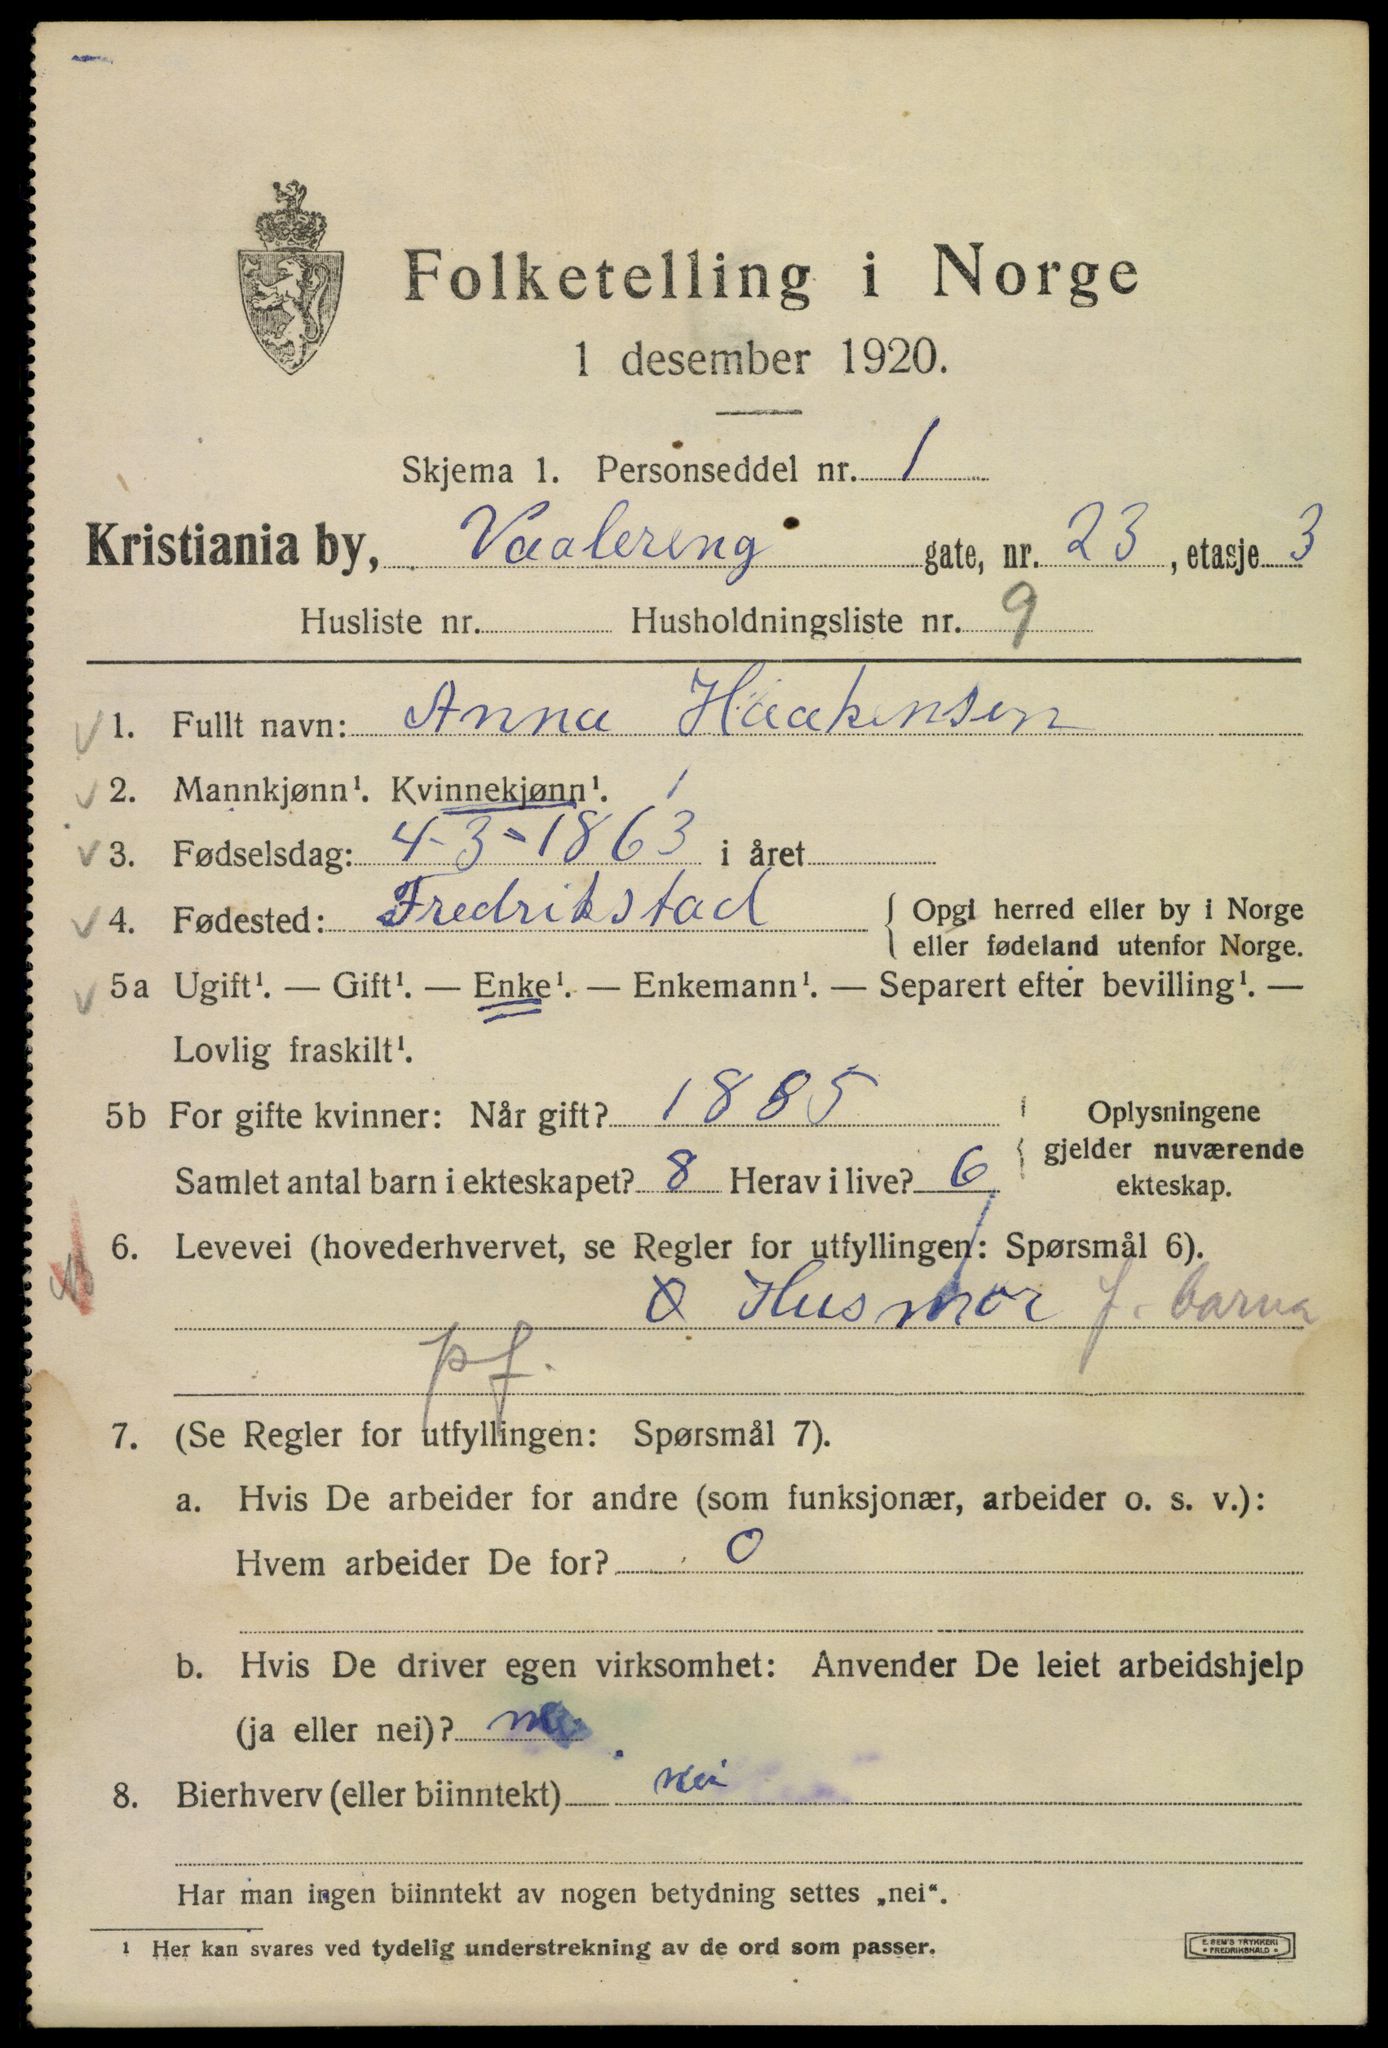 Folketelling i Norge
1 desember 1920.
Skjema 1. Personseddel nr. 1
Kristiania by, Vaalereng gate, nr. 23, etasje 3
Husliste nr. Husholdningsliste nr. 9
1. Fullt navn: Anna Haakensen
2. Mannkjønn¹. Kvinnekjønn¹. 1
3. Fødselsdag: 4-3-1863 i året
4. Fødested: Fredrikstad { Opgi herred eller by i Norge
eller fødeland utenfor Norge.
5a Ugift¹. — Gift¹. — Enke¹. — Enkemann¹. — Separert efter bevilling¹. —
Lovlig fraskilt¹.
5b For gifte kvinner: Når gift? 1885 Oplysningene
gjelder nuværende
Samlet antal barn i ekteskapet? 8 Herav i live? 6 ekteskap.
6. Levevei (hovederhvervet, se Regler for utfyllingen: Spørsmål 6).
Husmor f. barna
pf.
7. (Se Regler for utfyllingen: Spørsmål 7).
a. Hvis De arbeider for andre (som funksjonær, arbeider o. s. v.):
Hvem arbeider De for? 0
b. Hvis De driver egen virksomhet: Anvender De leiet arbeidshjelp
(ja eller nei)?
8. Bierhverv (eller biinntekt) nei
Har man ingen biinntekt av nogen betydning settes „nei“.
¹ Her kan svares ved tydelig understrekning av de ord som passer.
E. SEM'S TRYKKERI
• FREDRIKSHALD •